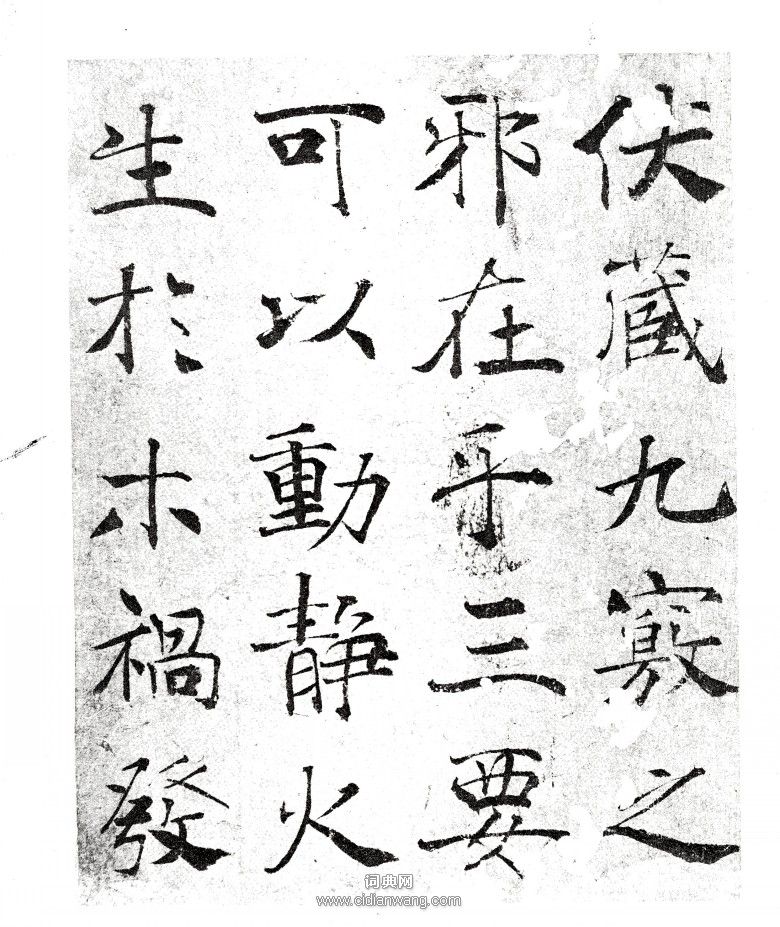 伏藏九竅之
邪在乎三要
可以動静火
生於木禍發
词典网
www.cidianwang.com